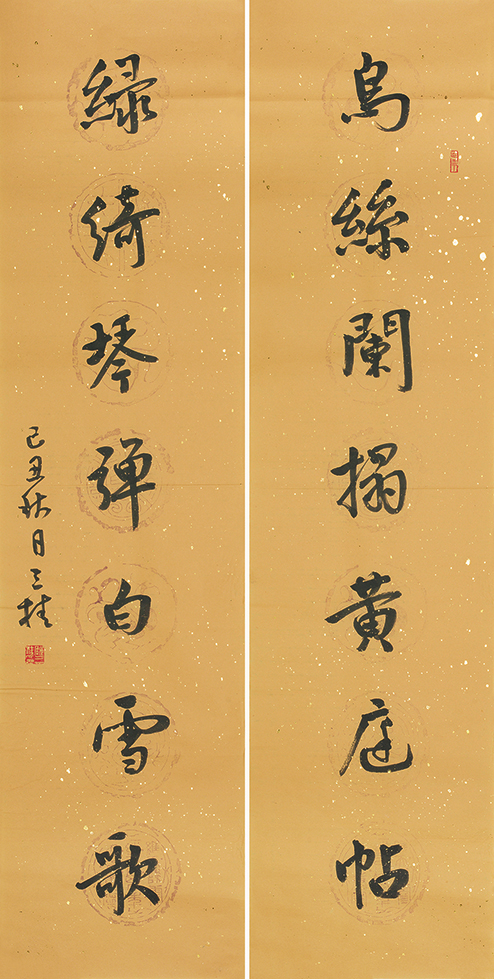 烏絲闌搨黃庭帖
綠綺琴彈白雪歌
己丑秋日三桂